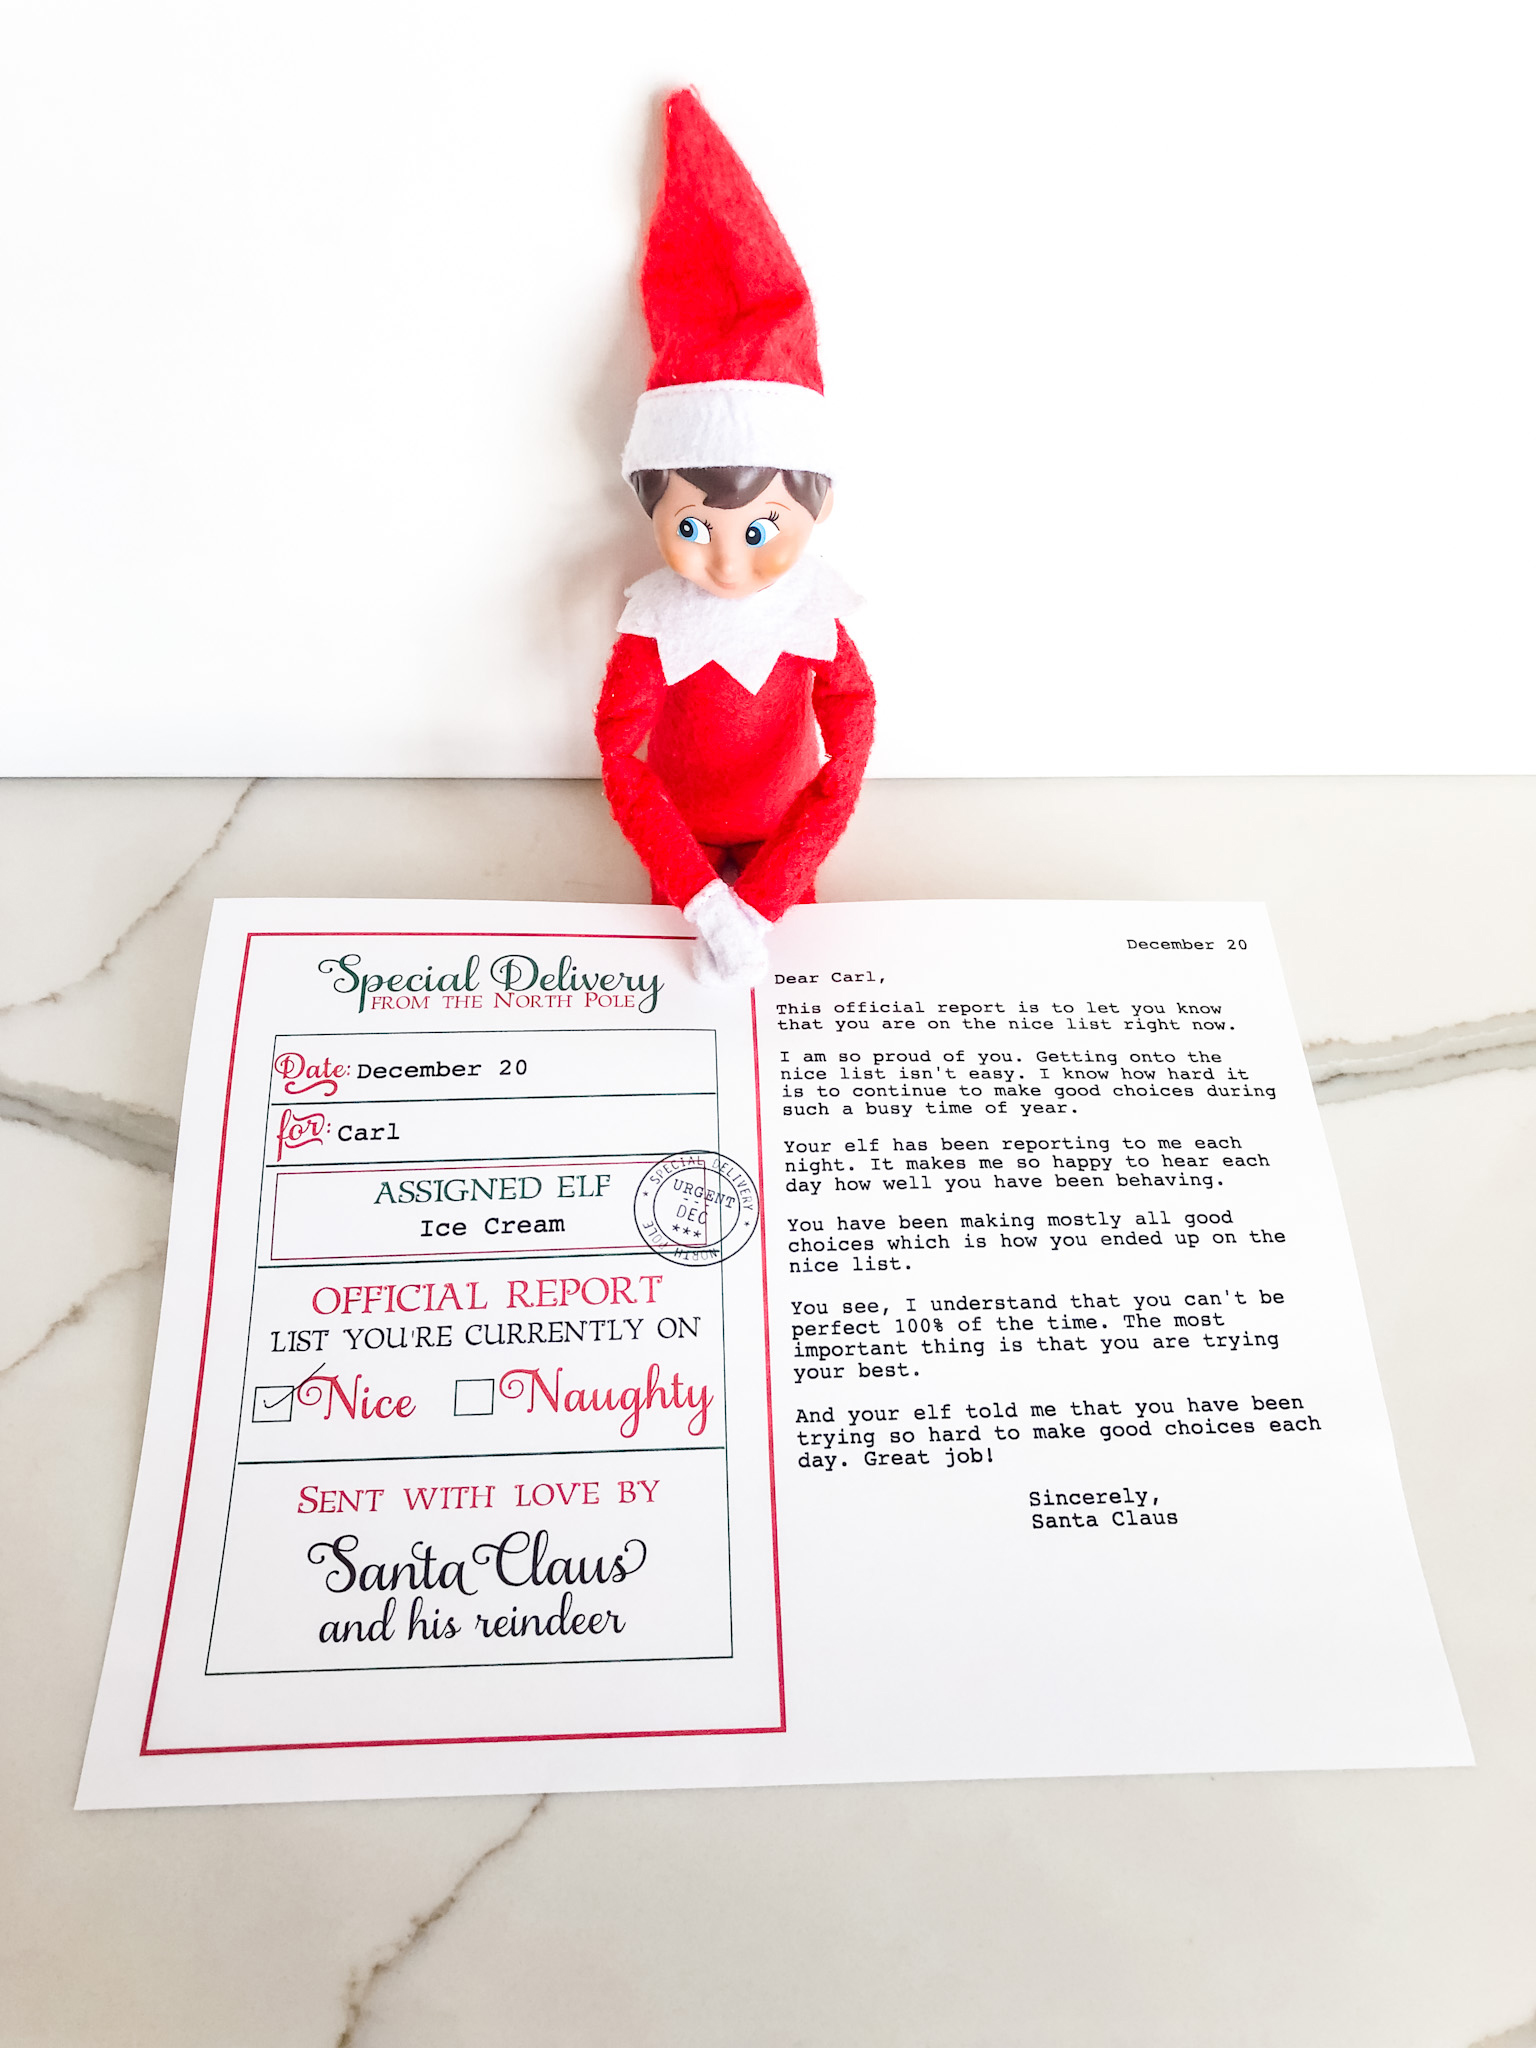 Special Delivery
FROM THE NORTH POLE
Date: December 20
for: Carl
ASSIGNED ELF
Ice Cream
SPECIAL DELIVERY
NORTH POLE
URGENT
DEC
***
OFFICIAL REPORT
LIST YOU'RE CURRENTLY ON
Nice Naughty
SENT WITH LOVE BY
Santa Claus
and his reindeer
December 20
Dear Carl,
This official report is to let you know
that you are on the nice list right now.
I am so proud of you. Getting onto the
nice list isn't easy. I know how hard it
is to continue to make good choices during
such a busy time of year.
Your elf has been reporting to me each
night. It makes me so happy to hear each
day how well you have been behaving.
You have been making mostly all good
choices which is how you ended up on the
nice list.
You see, I understand that you can't be
perfect 100% of the time. The most
important thing is that you are trying
your best.
And your elf told me that you have been
trying so hard to make good choices each
day. Great job!
Sincerely,
Santa Claus